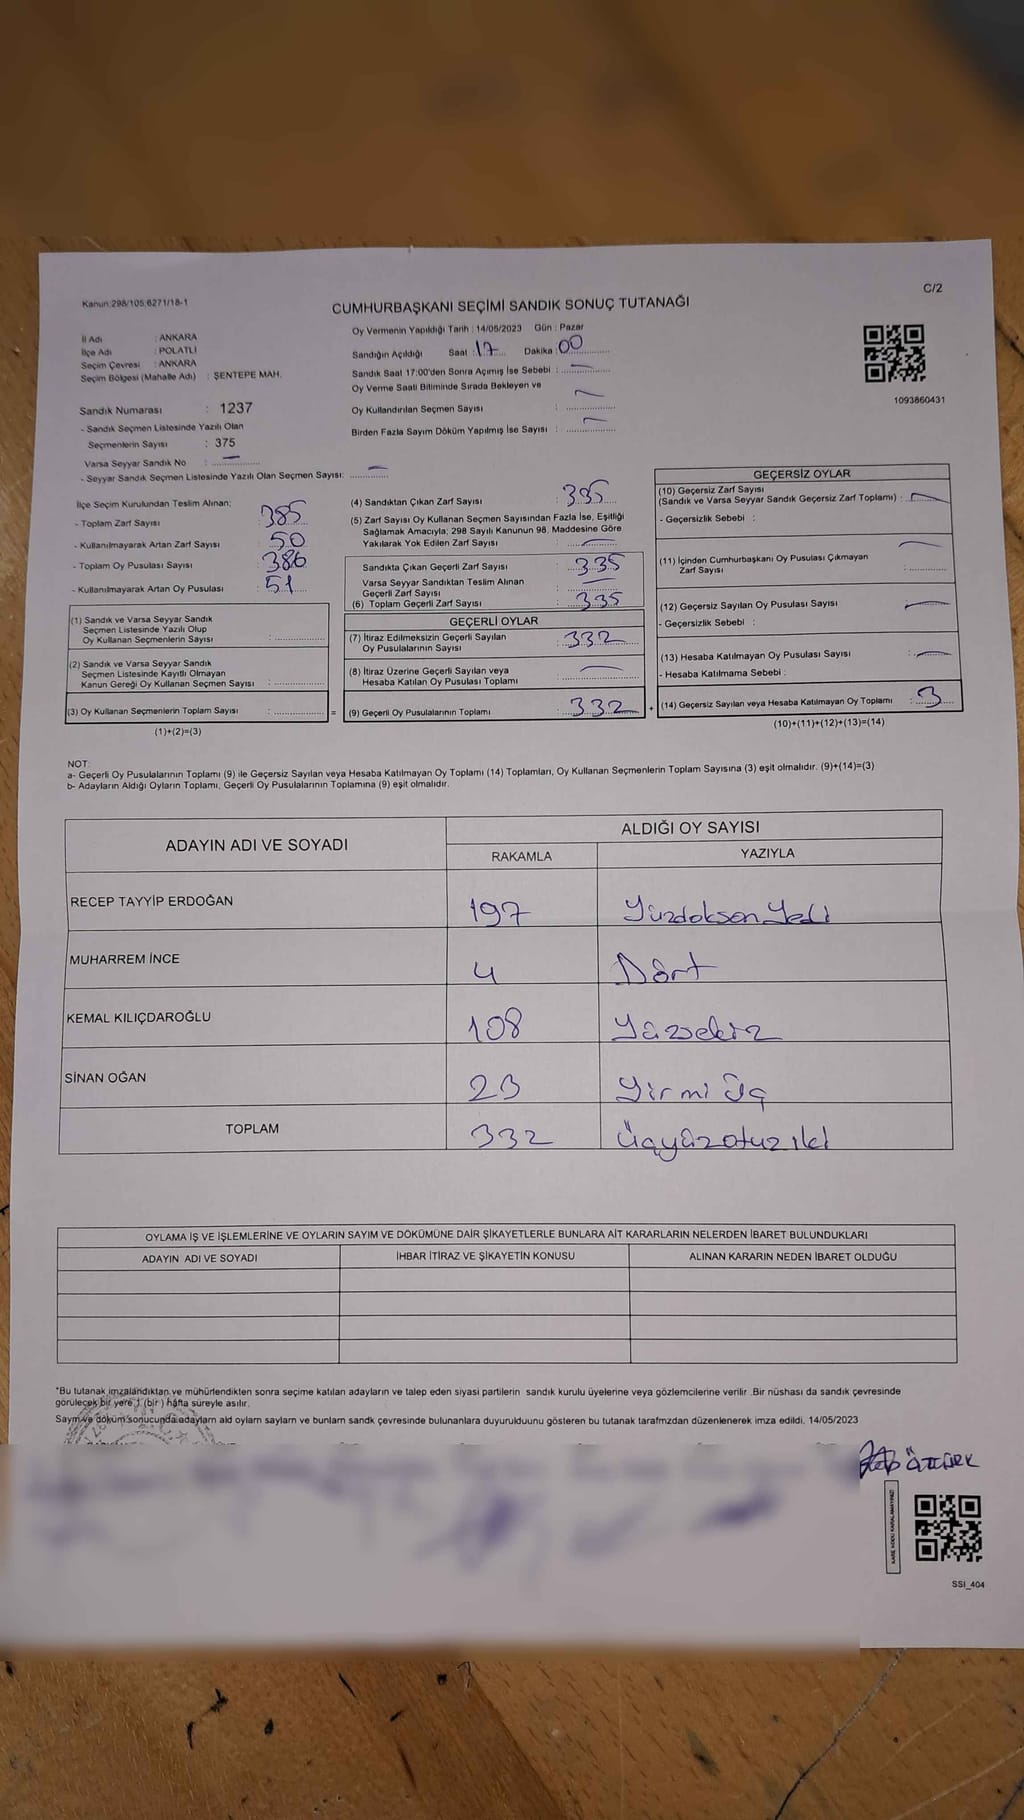 Kanun:298/105,6271/18-1
C/2
CUMHURBAŞKANI SEÇİMİ SANDIK SONUÇ TUTANAĞI
İl Adı : ANKARA
İlçe Adı : POLATLI
Seçim Çevresi : ANKARA
Seçim Bölgesi (Mahalle Adı) : ŞENTEPE MAH.
Sandık Numarası : 1237
- Sandık Seçmen Listesinde Yazılı Olan
Seçmenlerin Sayısı : 375
Varsa Seyyar Sandık No : —
- Seyyar Sandık Seçmen Listesinde Yazılı Olan Seçmen Sayısı: —
Oy Vermenin Yapıldığı Tarih : 14/05/2023 Gün : Pazar
Sandığın Açıldığı Saat : 17 Dakika : 00
Sandık Saat 17:00'den Sonra Açımış İse Sebebi : —
Oy Verme Saati Bitiminde Sırada Bekleyen ve
Oy Kullandırılan Seçmen Sayısı : —
Birden Fazla Sayım Döküm Yapılmış İse Sayısı : —
1093860431
İlçe Seçim Kurulundan Teslim Alınan;
- Toplam Zarf Sayısı : 385
- Kullanılmayarak Artan Zarf Sayısı : 50
- Toplam Oy Pusulası Sayısı : 386
- Kullanılmayarak Artan Oy Pusulası : 51
(1) Sandık ve Varsa Seyyar Sandık
Seçmen Listesinde Yazılı Olup
Oy Kullanan Seçmenlerin Sayısı :
(2) Sandık ve Varsa Seyyar Sandık
Seçmen Listesinde Kayıtlı Olmayan
Kanun Gereği Oy Kullanan Seçmen Sayısı :
(3) Oy Kullanan Seçmenlerin Toplam Sayısı : =
(1)+(2)=(3)
(4) Sandıktan Çıkan Zarf Sayısı : 335
(5) Zarf Sayısı Oy Kullanan Seçmen Sayısından Fazla İse, Eşitliği
Sağlamak Amacıyla; 298 Sayılı Kanunun 98. Maddesine Göre
Yakılarak Yok Edilen Zarf Sayısı : —
Sandıkta Çıkan Geçerli Zarf Sayısı : 335
Varsa Seyyar Sandıktan Teslim Alınan
Geçerli Zarf Sayısı : —
(6) Toplam Geçerli Zarf Sayısı : 335
GEÇERLİ OYLAR
(7) İtiraz Edilmeksizin Geçerli Sayılan
Oy Pusulalarının Sayısı : 332
(8) İtiraz Üzerine Geçerli Sayılan veya
Hesaba Katılan Oy Pusulası Toplamı : —
(9) Geçerli Oy Pusulalarının Toplamı : 332 +
GEÇERSİZ OYLAR
(10) Geçersiz Zarf Sayısı
(Sandık ve Varsa Seyyar Sandık Geçersiz Zarf Toplamı) : —
- Geçersizlik Sebebi :
(11) İçinden Cumhurbaşkanı Oy Pusulası Çıkmayan
Zarf Sayısı : —
(12) Geçersiz Sayılan Oy Pusulası Sayısı : —
- Geçersizlik Sebebi :
(13) Hesaba Katılmayan Oy Pusulası Sayısı : —
- Hesaba Katılmama Sebebi :
(14) Geçersiz Sayılan veya Hesaba Katılmayan Oy Toplamı : 3
(10)+(11)+(12)+(13)=(14)
NOT:
a- Geçerli Oy Pusulalarının Toplamı (9) ile Geçersiz Sayılan veya Hesaba Katılmayan Oy Toplamı (14) Toplamları, Oy Kullanan Seçmenlerin Toplam Sayısına (3) eşit olmalıdır. (9)+(14)=(3)
b- Adayların Aldığı Oyların Toplamı, Geçerli Oy Pusulalarının Toplamına (9) eşit olmalıdır.
ADAYIN ADI VE SOYADI ALDIĞI OY SAYISI
RAKAMLA YAZIYLA
RECEP TAYYİP ERDOĞAN 197 Yüzdoksan Yedi
MUHARREM İNCE 4 Dört
KEMAL KILIÇDAROĞLU 108 Yüzsekiz
SİNAN OĞAN 23 Yirmi Üç
TOPLAM 332 Üçyüzotuz iki
OYLAMA İŞ VE İŞLEMLERİNE VE OYLARIN SAYIM VE DÖKÜMÜNE DAİR ŞİKAYETLERLE BUNLARA AİT KARARLARIN NELERDEN İBARET BULUNDUKLARI
ADAYIN ADI VE SOYADI İHBAR İTİRAZ VE ŞİKAYETİN KONUSU ALINAN KARARIN NEDEN İBARET OLDUĞU
*Bu tutanak imzalandıktan ve mühürlendikten sonra seçime katılan adayların ve talep eden siyasi partilerin sandık kurulu üyelerine veya gözlemcilerine verilir .Bir nüshası da sandık çevresinde
görülecek bir yere 1 (bir ) hafta süreyle asılır.
Sayım ve döküm sonucunda adayların ald oyların sayların ve bunların sandk çevresinde bulunanlara duyurulduunu gösteren bu tutanak tarafmzdan düzenlenerek imza edildi. 14/05/2023
ÖZTÜRK
KARE KODU KARALAMAYINIZ!
SSI_404